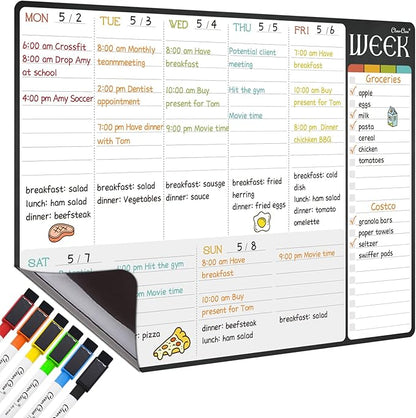 MON 5 / 2
6:00 am Crossfit
8:00 am Drop Amy
at school
4:00 pm Amy Soccer
breakfast: salad
lunch: ham salad
dinner: beefsteak
TUE 5 / 3
8:00 am Monthly
teammeeting
2:00 pm Dentist
appointment
7:00 pm Have dinner
with Tom
breakfast: salad
dinner: Vegetables
WED 5 / 4
8:00 am Have
breakfast
10:00 am Buy
present for Tom
9:00 pm Movie time
breakfast: sausge
dinner: sauce
THU 5 / 5
Potential client
meeting
Hit the gym
Movie time
breakfast: fried
herring
dinner: fried eggs
FRI 5 / 6
7:00 am Have
breakfast
10:00 am Buy
present for Tom
8:00 pm Dinner
chichken BBG
breakfast: cold
dish
lunch: ham salad
dinner: tomato
omelette
WEEK
Groceries
apple
eggs
milk
pasta
cereal
chicken
tomatoes
Costco
granola bars
paper towels
seltzer
swiffer pads
SAT 5 / 7
4:00 pm Hit the gym
Movie time
pizza
SUN 5 / 8
8:00 am Have
breakfast
10:00 am Buy
present for Tom
9:00 pm Movie time
dinner: beefsteak
lunch: ham salad
breakfast: salad